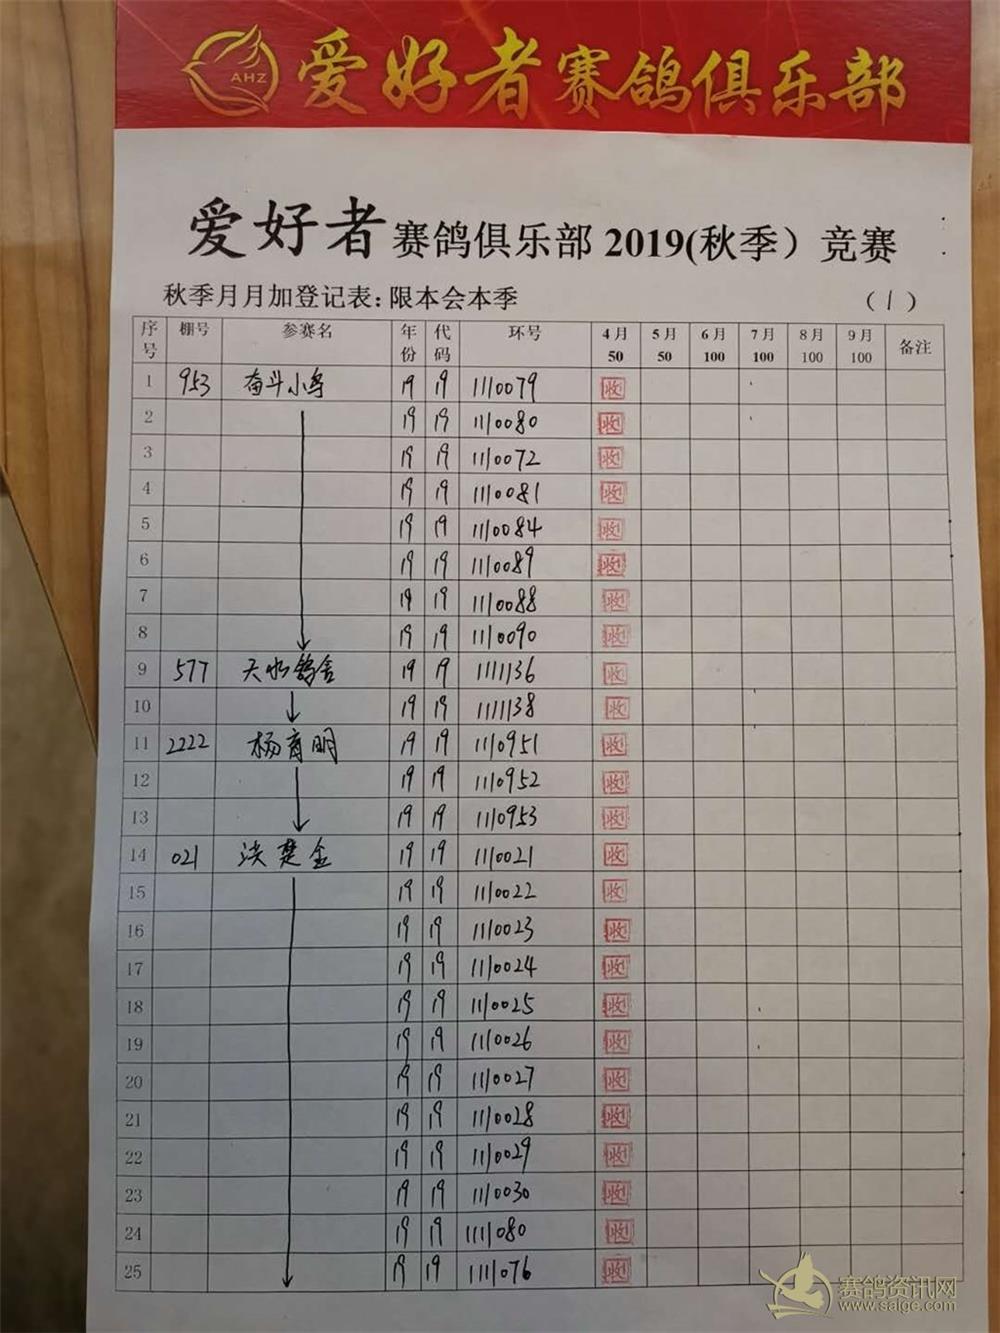 AHZ
爱好者赛鸽俱乐部
爱好者赛鸽俱乐部 2019(秋季）竞赛
秋季月月加登记表: 限本会本季 （1）
序号 棚号 参赛名 年份 代码 环号 4月 50 5月 50 6月 100 7月 100 8月 100 9月 100 备注
1 953 奋斗小号 19 19 1110079 收
2 19 19 1110080 收
3 19 19 1110072 收
4 19 19 1110081 收
5 19 19 1110084 收
6 19 19 1110089 收
7 19 19 1110088 收
8 19 19 1110090 收
9 577 天水鸽舍 19 19 1111136 收
10 19 19 1111138 收
11 2222 杨育明 19 19 1110951 收
12 19 19 1110952 收
13 19 19 1110953 收
14 021 洪楚金 19 19 1110021 收
15 19 19 1110022 收
16 19 19 1110023 收
17 19 19 1110024 收
18 19 19 1110025 收
19 19 19 1110026 收
20 19 19 1110027 收
21 19 19 1110028 收
22 19 19 1110029 收
23 19 19 1110030 收
24 19 19 1111080 收
25 19 19 1111076 收
赛鸽资讯网
www.saige.com